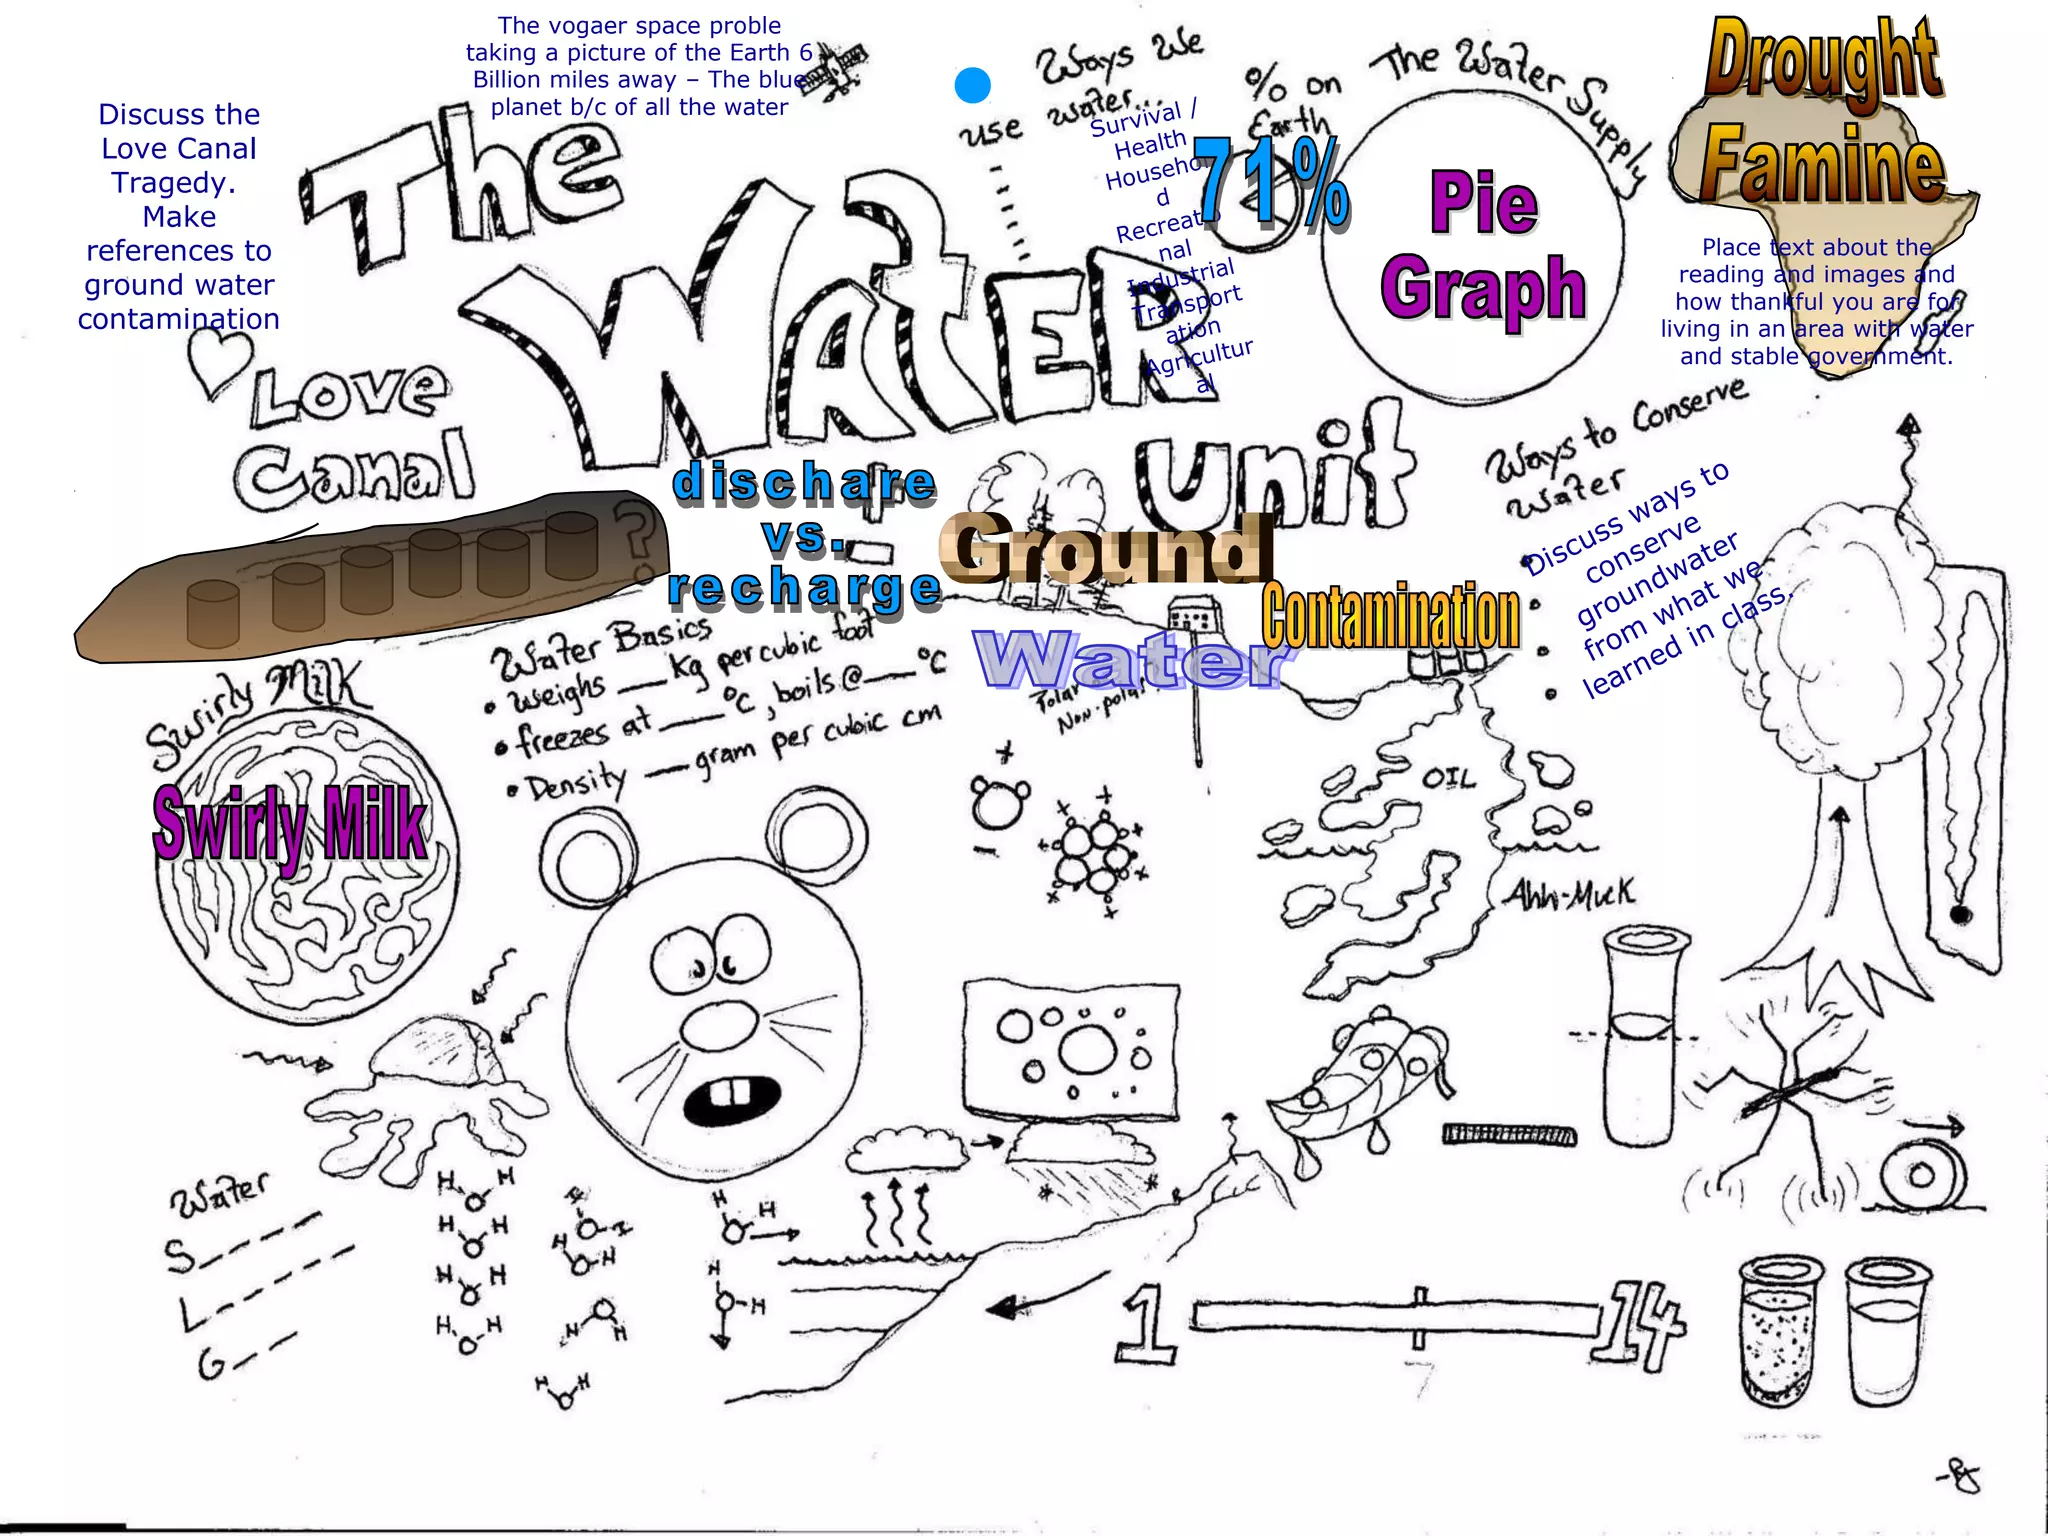 The vogaer space proble
taking a picture of the Earth 6
Billion miles away – The blue
planet b/c of all the water
Discuss the
Love Canal
Tragedy.
Make
references to
ground water
contamination
The
Water
Unit
Ways We
use water...
Survival /
Health
Househol
d
Recreatio
nal
Industrial
Transport
ation
Agricultur
al
% on
Earth
71%
The Water Supply
Pie
Graph
Drought
Famine
Place text about the
reading and images and
how thankful you are for
living in an area with water
and stable government.
Love
Canal
?
dischare
vs.
recharge
+
-
Ground
Water
Contamination
Ways to Conserve
Water
Discuss ways to
conserve
groundwater
from what we
learned in class.
Swirly Milk
Swirly Milk
Water Basics
• weighs ___ kg per cubic foot
• freezes at ___ °C, boils @ ___ °C
• Density ___ gram per cubic cm
Polar
Non-polar
+
-
+ + + + + + + +
OIL
Ahh-Muck
Water
S_ _ _ _ _
L_ _ _ _ _
G_ _ _
H H
H H
H H
H H
H H
H H
H H
H H
H H
H H
1
14
7